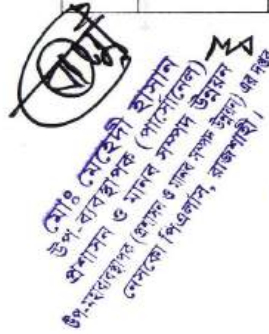 মোঃ মেহেদী হাসান
উপ-ব্যবস্থাপক (পার্সোনেল)
প্রশাসন ও মানব সম্পদ উন্নয়ন
উপ-মহাব্যবস্থাপক (প্রশাসন ও মানব সম্পদ উন্নয়ন) এর দপ্তর
নেসকো পিএলসি, রাজশাহী।